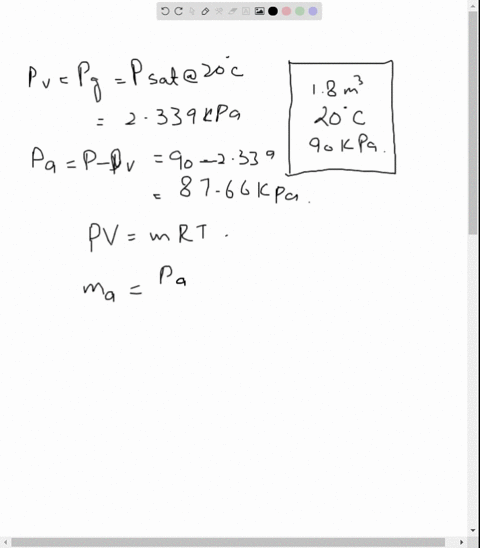 Pv = Pg = Psat@20°C
= 2.339 kPa
Pa = P-Pv = 90-2.339
= 87.66 kPa.
PV = mRT.
ma = Pa
1.8 m³
20°C
90 kPa.